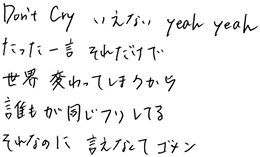 Don't Cry いえない yeah yeah
たった一言 それだけで
世界 変わってしまうから
誰もが同じフリしてる
それなのに 言えなくてゴメン